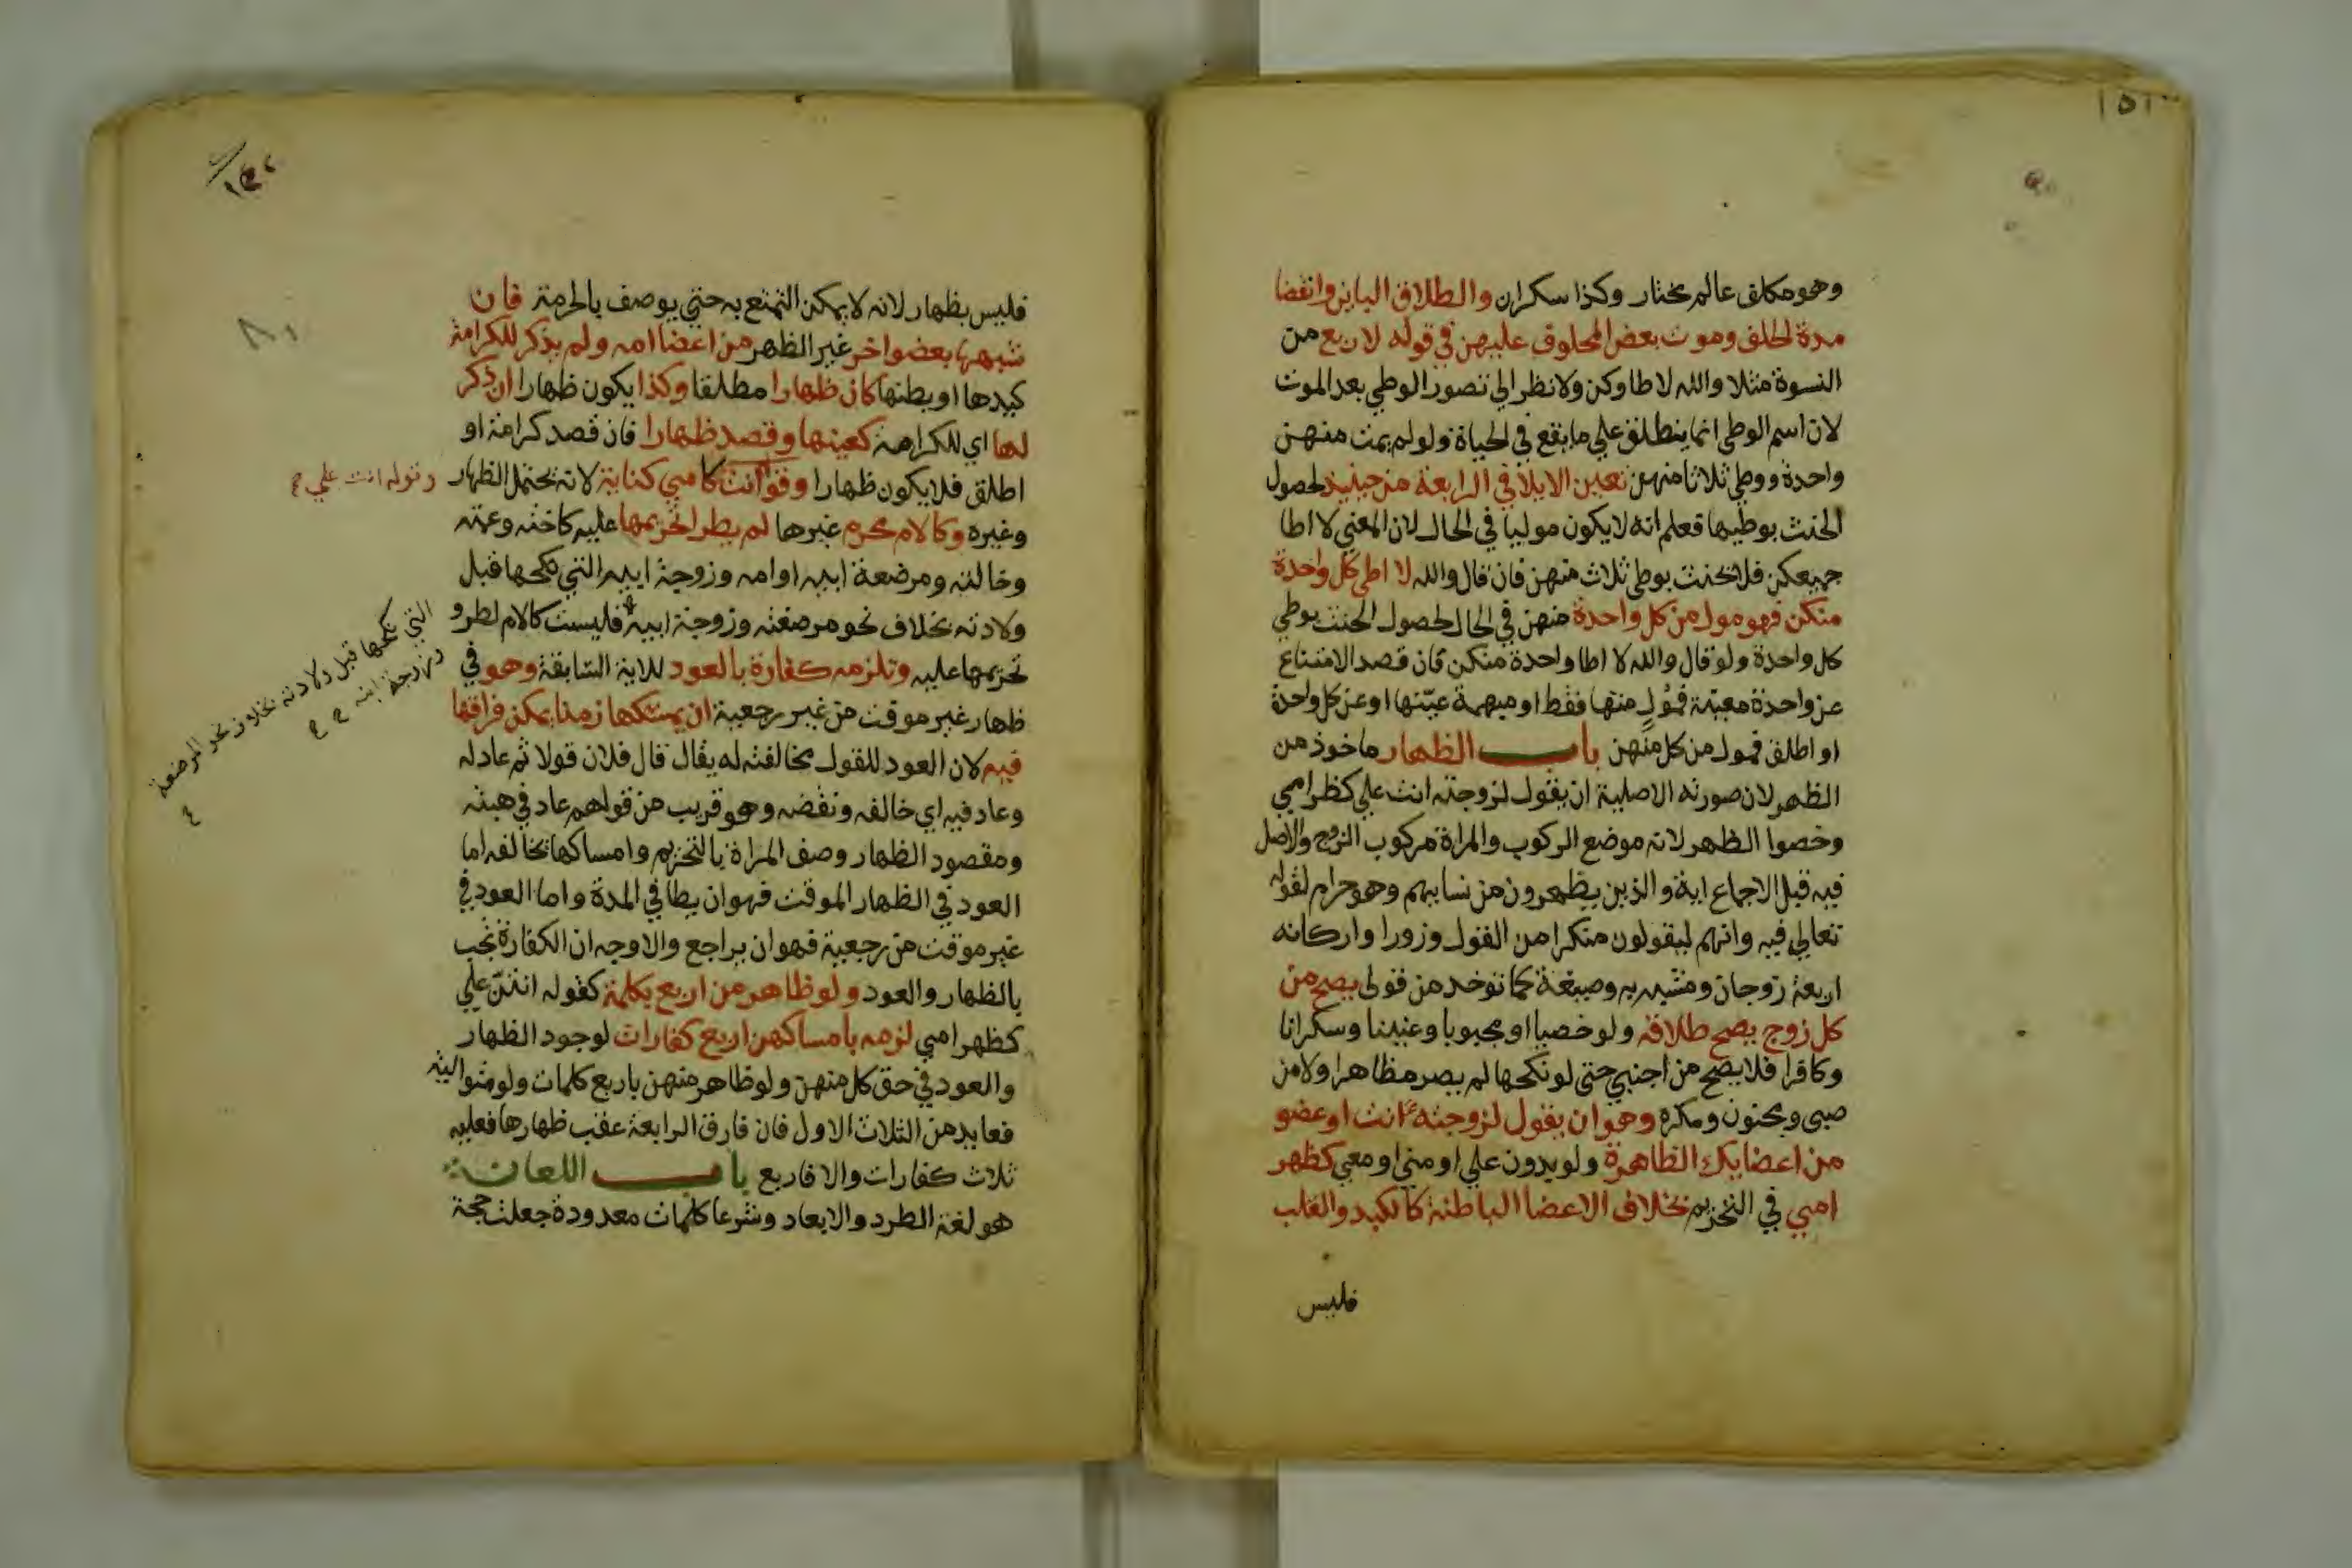 ١٥١
وهو مكلف عالم مختار وكذا سكران والطلاق الباين وانقضا
مدة الحلف وموت بعض المحلوف عليهن في قوله لاربع من
النسوة مثلا والله لا طاوكن ولا نظر الي تصور الوطي بعد الموت
لان اسم الوطي انما ينطلق علي ما يقع في الحياة ولو لم يمت منهن
واحدة ووطي ثلاثا منهن تعين الايلا في الرابعة من حينيذ لحصول
الحنث بوطيها فعلم انه لا يكون موليا في الحال لان المعني لا اطا
جميعكن فلا يحنث بوطي ثلاث منهن فان قال والله لا اطي كل واحدة
منكن فهو مول من كل واحدة منهن في الحال لحصول الحنث بوطي
كل واحدة ولو قال والله لا اطا واحدة منكن فان قصد الامتناع
عن واحدة معينة فمول منها فقط او مبهمة عينها او عن كل واحدة
او اطلق فمول من كل منهن باب الظهار ماخوذ من
الظهر لان صورته الاصلية ان يقول لزوجته انت علي كظهر امي
وخصوا الظهر لانه موضع الركوب والمراة مركوب الزوج والاصل
فيه قبل الاجماع اية والذين يظهرون من نسايهم وهو حرام لقوله
تعالي فيه وانهم ليقولون منكرا من القول وزورا واركانه
اربعة زوجان ومشبه به وصيغة كما توخد من قولي يصح من
كل زوج يصح طلاقه ولو خصيا او مجبوبا وعنينا وسكرانا
وكافرا فلا يصح من اجنبي حتى لو نكحها لم يصر مظاهرا ولا من
صبى ومجنون ومكره وهو ان يقول لزوجته انت او عضو
من اعضايك الظاهرة ولو بدون علي او مني او معي كظهر
امي في التحريم بخلاف الاعضا الباطنة كالكبد والقلب
فليس
فليس بظهار لانه لا يمكن التمتع به حتي يوصف بالحرمة فان
شبهها ببعض واخر غير الظهر من اعضا امه ولم يذكر للكرامة
كيدها او بطنها كان ظهارا مطلقا وكذا يكون ظهارا ان ذكر
لها اي للكرامة كعينها وقصد ظهارا فان قصد كرامة او
اطلق فلا يكون ظهارا وقوانت كامي كناية لانه يحتمل الظهار
وقوله انت علي
وغيره وكالام محرم غيرها لم يطرا تحريمها عليه كاخته وعمته
وخالته ومرضعة ابيه او امه وزوجة ابيه التي نكحها قبل
ولادته بخلاف نحو مرضعته وزوجة ابيه فليست كالام لطرو
التي نكحها قبل ولادته بخلاف نحو المرضعة
وزوجة ابنه
تحريمها عليه وتلزمه كفارة بالعود للاية السابقة وهو في
ظهار غير موقت من غير رجعية ان يمسكها زمنا يمكن فراقها
فيه لان العود للقول مخالفته له يقال قال فلان قولا ثم عاد له
وعاد فيه اي خالفه ونقضه وهو قريب من قولهم عاد في هبته
ومقصود الظهار وصف المراة بالتحريم وامساكها يخالفه اما
العود في الظهار الموقت فهو ان يطا في المدة واما العود في
غير موقت من رجعية فهو ان يراجع والاوجه ان الكفارة تجب
بالظهار والعود ولو ظاهر من اربع بكلمة كقوله انتن علي
كظهر امي لزمه بامساكهن اربع كفارات لوجود الظهار
والعود في حق كل منهن ولو ظاهر منهن باربع كلمات ولو متوالية
فعايد من الثلاث الاول فان فارق الرابعة عقب ظهارها فعليه
ثلاث كفارات والا فاربع باب اللعان
هو لغة الطرد والابعاد وشرعا كلمات معدودة جعلت حجة